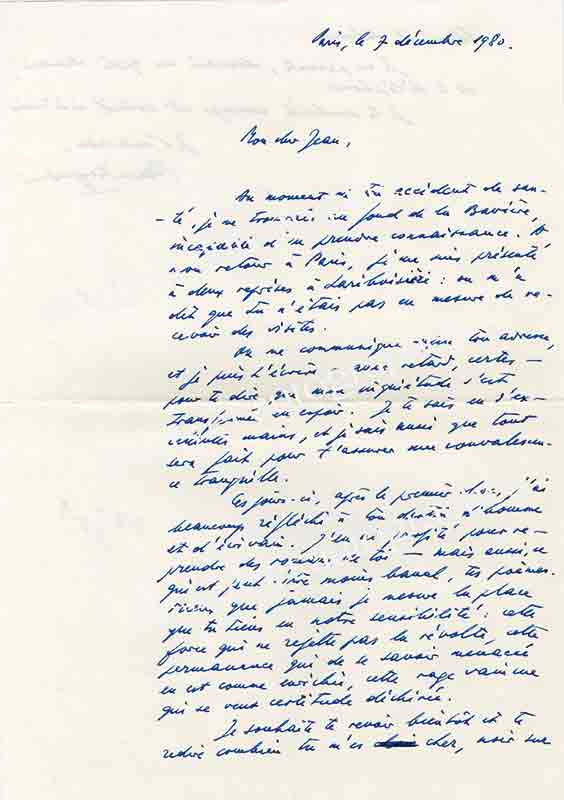 Paris, le 7 décembre 1980.
Mon cher Jean,
Au moment où ton accident de san-
-té, je me trouvais au fond de la Bavière,
incapable d'en prendre connaissance. A
mon retour à Paris, je me suis présenté
à deux reprises à Lariboisière : on m'a
dit que tu n'étais pas en mesure de re-
cevoir des visites.
On me communique ton adresse,
et je puis t'écrire avec retard, certes —
pour te dire que mon inquiétude s'est
transformée en espoir. Je te sais en d'ex-
cellentes mains, et je sais aussi que tout
sera fait pour t'assurer une convalescen-
ce tranquille.
Ces jours-ci, après le premier choc, j'ai
beaucoup réfléchi à ton destin d'homme
et d'écrivain. J'en ai profité pour re-
prendre des romans de toi — mais aussi, ce
qui est peut-être moins banal, tes poèmes.
Mieux que jamais je mesure la place
que tu tiens en notre sensibilité : cette
force qui ne rejette pas la révolte, cette
permanence qui de se savoir menacée
en est comme enrichie, cette rage vaincue
qui se veut certitude déchirée.
Je souhaite te revoir bientôt et te
redire combien tu m'es cher, noir sur